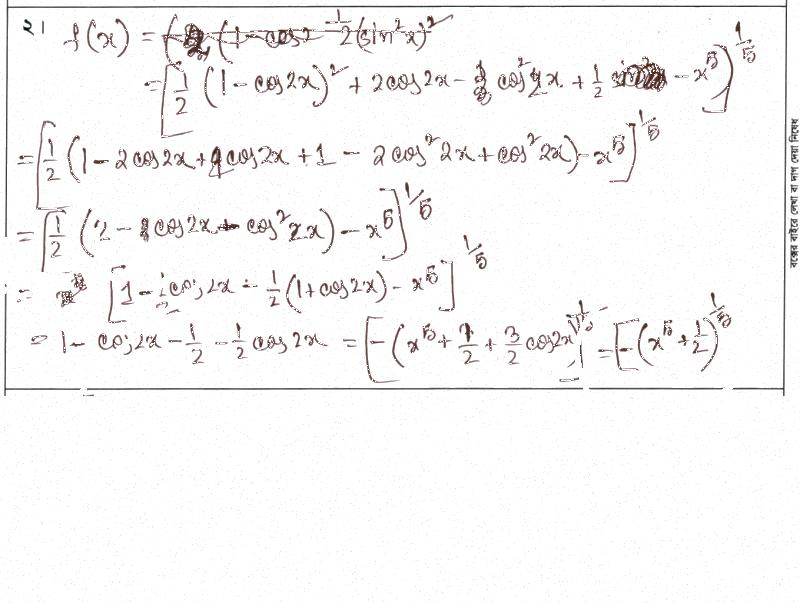 ২। f(x) =
= [1/2 (1 - cos2x)² + 2cos2x - cos² x + 1/2 - x⁵]^(1/5)
= [1/2 (1 - 2cos2x + 4cos2x + 1 - 2cos²2x + cos²2x) - x⁵]^(1/5)
= [1/2 (2 - cos2x cos²2x) - x⁵]^(1/5)
= [1 - cos2x - 1/2 (1 + cos2x) - x⁵]^(1/5)
= 1 - cos2x - 1/2 - 1/2 cos2x = [-(x⁵ + 1/2 + 3/2 cos2x)]^(1/5) = [-(x⁵ + 1/2)]^(1/5)
বক্সের বাইরে লেখা বা দাগ দেয়া নিষেধ